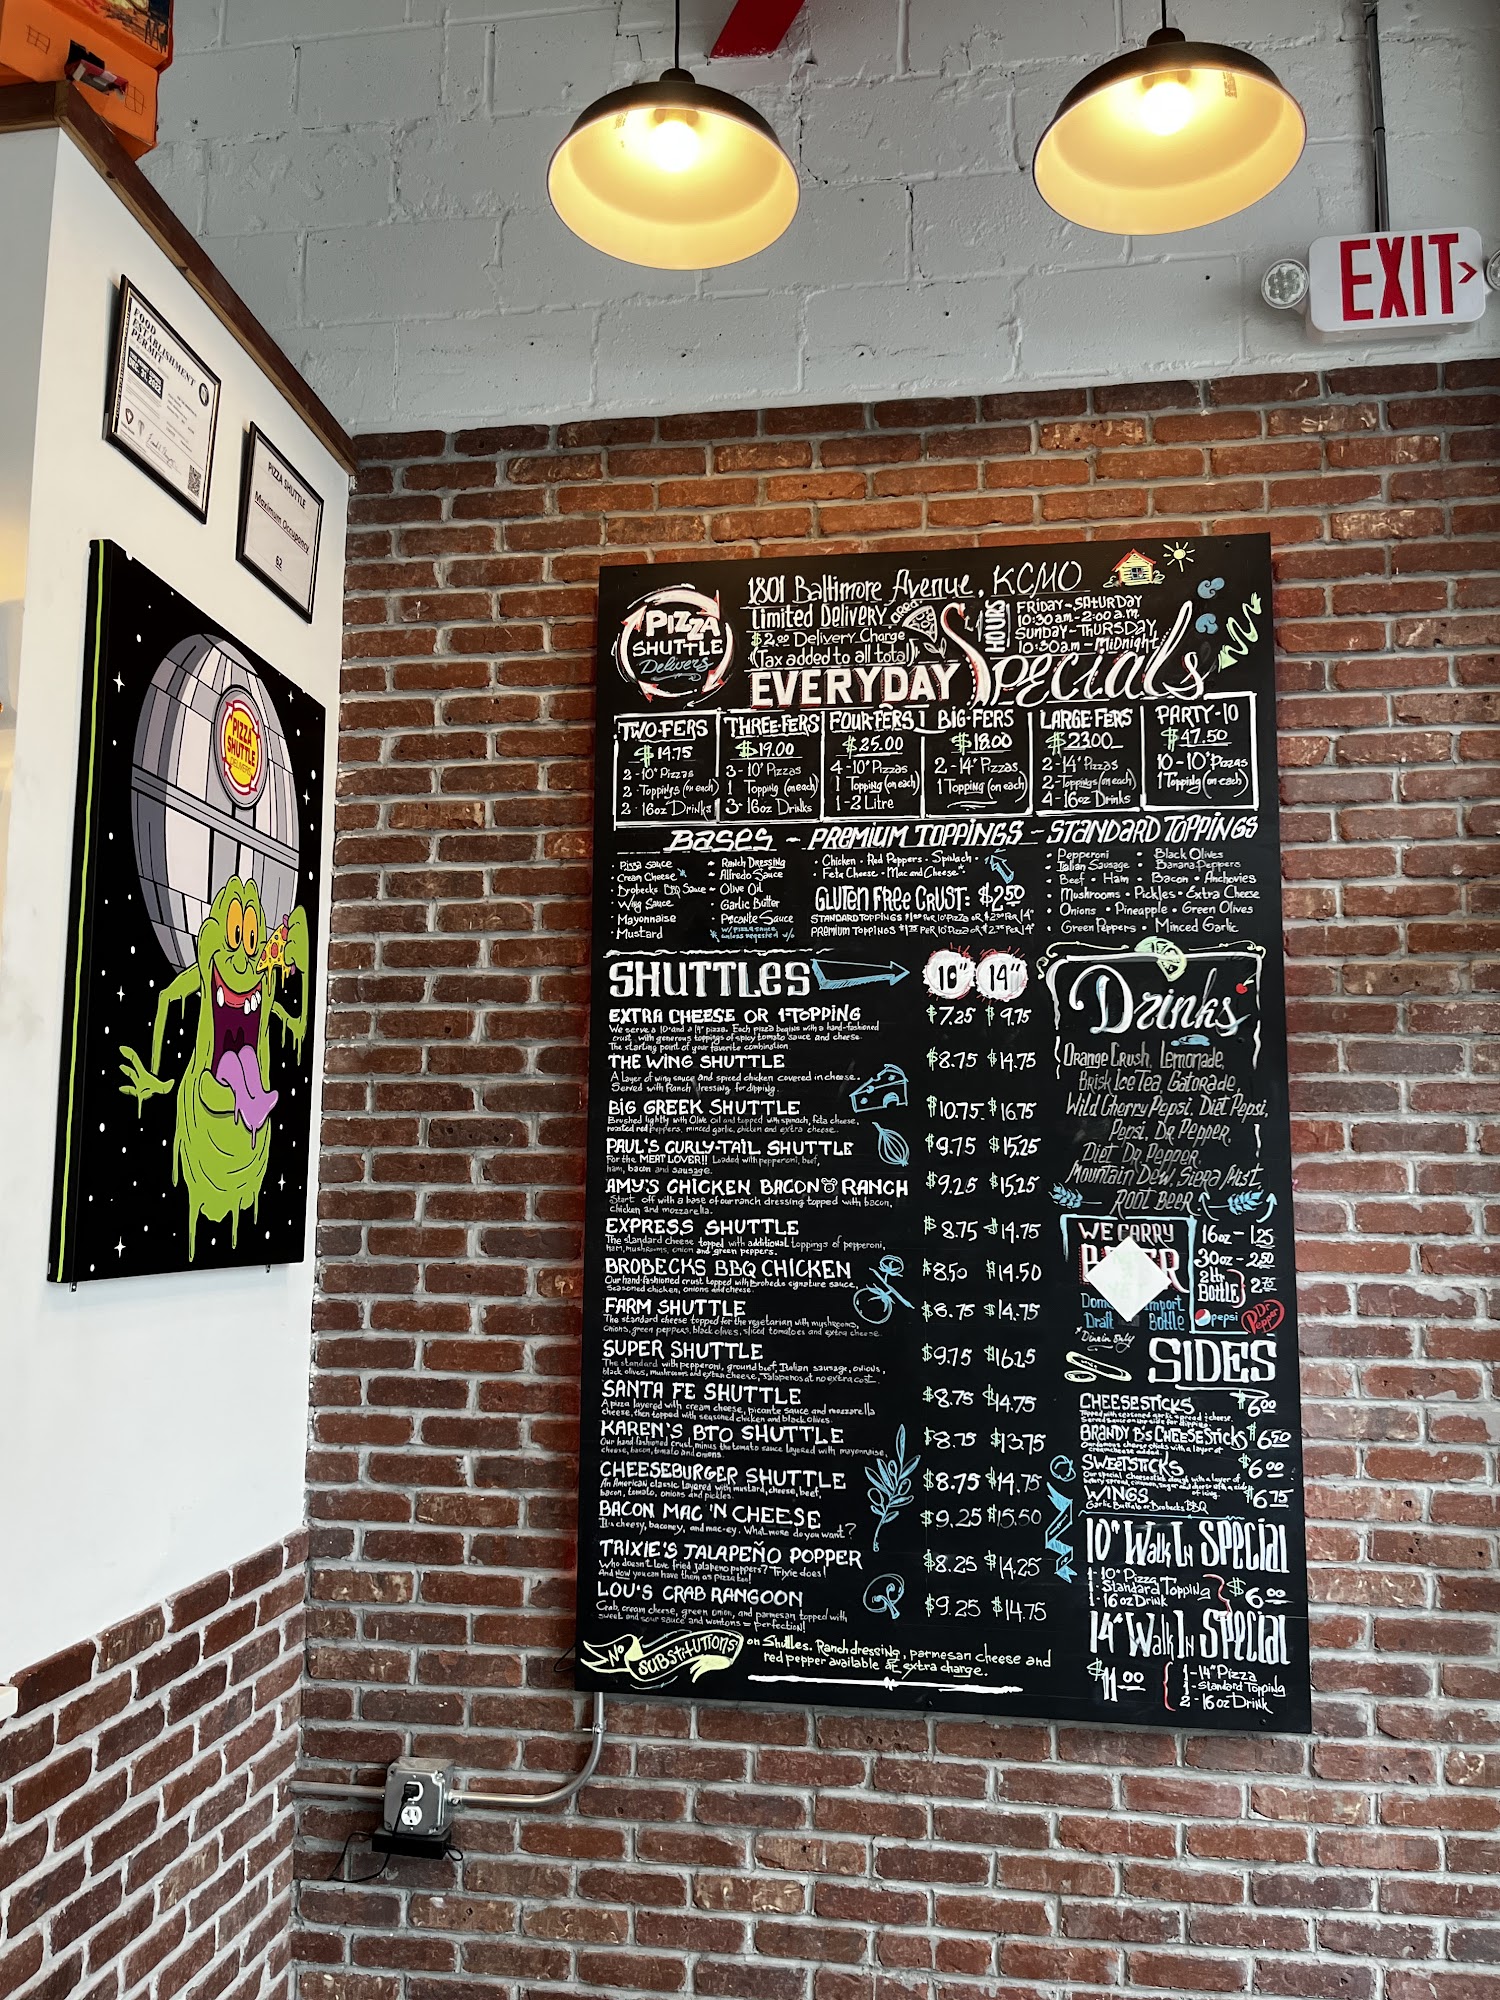 EXIT
FOOD
ESTABLISHMENT
PERMIT
DEC. 31, 2022
PIZZA SHUTTLE
Maximum Occupancy
62
PIZZA
SHUTTLE
DELIVERS
PIZZA
SHUTTLE
Delivers
1801 Baltimore Avenue, KCMO
Limited Delivery Area
$2.00 Delivery Charge
(Tax added to all total)
HOURS
FRIDAY-SATURDAY
10:30am-2:00a.m.
SUNDAY-THURSDAY
10:30am-MiDNight
EVERYDAY Specials
TWO-FERS
$14.75
2-10" Pizzas
2-Toppings (on each)
2-16oz Drinks
THREE-FERS
$19.00
3-10" Pizzas
1 Topping (on each)
3-16oz Drinks
FOUR-FERS
$25.00
4-10" Pizzas
1 Topping (on each)
1-2 Litre
BiG-FERS
$18.00
2-14" Pizzas
1 Topping (on each)
LARGE FERS
$23.00
2-14" Pizzas
2-Toppings (on each)
4-16oz Drinks
PARTY-10
$47.50
10-10" Pizzas
1 Topping (on each)
BASES - PREMIUM TOPPINGS - STANDARD TOPPINGS
Pizza Sauce
Cream Cheese
Brobecks BBQ Sauce
Wing Sauce
Mayonnaise
Mustard
Ranch Dressing
Alfredo Sauce
Olive Oil
Garlic Butter
Picante Sauce
* w/ Pizza Sauce
unless requested w/o
Chicken • Red Peppers • Spinach •
Feta Cheese • Mac and Cheese
GLUTEN FREE CRUST: $2.50
STANDARD TOPPINGS $1.00 PER 10" PIZZA OR $2.00 PER 14"
PREMIUM TOPPINGS PER 10" PIZZA OR PER 14"
• Pepperoni • Black Olives
• Italian Sausage • Banana Peppers
• Beef • Ham • Bacon • Anchovies
• Mushrooms • Pickles • Extra Cheese
• Onions • Pineapple • Green Olives
• Green Peppers • Minced Garlic
SHUTTLES 10" 14"
EXTRA CHEESE OR 1-TOPPING $7.25 $9.75
We serve a 10" and a 14" pizza. Each pizza begins with a hand-fashioned
crust, with generous toppings of spicy tomato sauce and cheese.
The starting point of your favorite combination.
THE WING SHUTTLE $8.75 $14.75
A layer of wing sauce and spiced chicken covered in cheese.
Served with Ranch dressing for dipping.
BiG GREEK SHUTTLE $10.75 $16.75
Brushed lightly with Olive oil and topped with spinach, feta cheese,
roasted red peppers, minced garlic, chicken and extra cheese.
PAUL'S CURLY-TAIL SHUTTLE $9.75 $15.25
For the MEAT LOVER!! Loaded with pepperoni, beef,
ham, bacon and sausage.
AMY'S CHICKEN BACON RANCH $9.25 $15.25
Start off with a base of our ranch dressing topped with bacon,
chicken and mozzarella.
EXPRESS SHUTTLE $8.75 $14.75
The standard cheese topped with additional toppings of pepperoni,
ham, mushrooms, onion and green peppers.
BROBECKS BBQ CHICKEN $8.50 $14.50
Our hand-fashioned crust topped with Brobecks signature sauce,
seasoned chicken, onions and cheese.
FARM SHUTTLE $8.75 $14.75
The standard cheese topped for the vegetarian with mushrooms,
onions, green peppers, black olives, sliced tomatoes and extra cheese.
SUPER SHUTTLE $9.75 $16.25
The standard with pepperoni, ground beef, Italian sausage, onions,
black olives, mushrooms and extra cheese, Jalapenos at no extra cost.
SANTA FE SHUTTLE $8.75 $14.75
A pizza layered with cream cheese, picante sauce and mozzarella
cheese, then topped with seasoned chicken and black olives.
KAREN'S BTO SHUTTLE $8.75 $13.75
Our hand fashioned crust minus the tomato sauce layered with mayonnaise,
cheese, bacon, tomato and onions.
CHEESEBURGER SHUTTLE $8.75 $14.75
An American classic layered with mustard, cheese, beef,
bacon, tomato, onions and pickles.
BACON MAC 'N CHEESE $9.25 $15.50
It's cheesy, baconey, and mac-ey. What more do you want?
TRIXIE'S JALAPEÑO POPPER $8.25 $14.25
Who doesn't love fried jalapeno poppers? Trixie does!
And now you can have them on pizza too!
LOU'S CRAB RANGOON $9.25 $14.75
Crab, cream cheese, green onion, and parmesan topped with
sweet and sour sauce and wontons = perfection!
NO SUBSTITUTIONS on Shuttles. Ranch dressing, parmesan cheese and
red pepper available at extra charge.
Drinks
Orange Crush, Lemonade,
Brisk Ice Tea, Gatorade,
Wild Cherry Pepsi, Diet Pepsi,
Pepsi, Dr. Pepper,
Diet Dr. Pepper,
Mountain Dew, Sierra Mist,
ROOT BEER
WE CARRY
Draft
Import
Bottle
*Dine in Only
16oz - 1.25
30oz - 2.50
2 ltr
Bottle 2.75
pepsi
Dr Pepper
SIDES
CHEESESTICKS $6.00
Topped with seasoned garlic spread & cheese.
Served sauce on the side for dipping.
BRANDY B'S CHEESESTICKS $6.50
Our famous cheese sticks with a layer of
cream cheese added.
SWEETSTICKS $6.00
Our special cheesestick dough with a layer of
buttery spread, cinnamon, sugar and cheese with a side
of icing.
WINGS $6.75
Garlic Buffalo or Brobecks BBQ
10" Walk In SPECIAL
1-10" Pizza
1-Standard Topping
1-16oz Drink
$6.00
14" Walk In SPECIAL
$11.00
1-14" Pizza
1-Standard Topping
2-16oz Drink